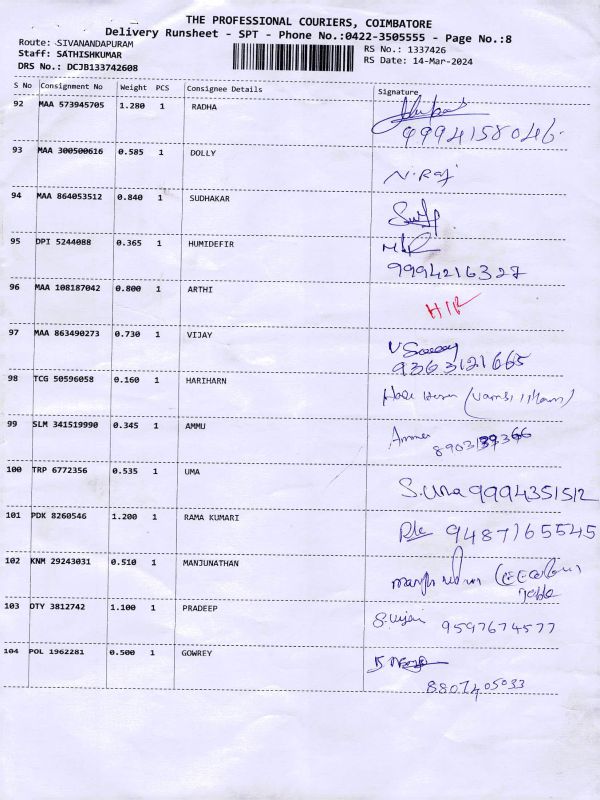 THE PROFESSIONAL COURIERS, COIMBATORE
Delivery Runsheet - SPT - Phone No.:0422-3505555 - Page No.:8
Route: SIVANANDAPURAM RS No.: 1337426
Staff: SATHISHKUMAR RS Date: 14-Mar-2024
DRS No.: DCJB133742608
S No Consignment No Weight PCS Consignee Details Signature
92 MAA 573945705 1.280 1 RADHA
9994158046.
93 MAA 300500616 0.585 1 DOLLY
N.Raj
94 MAA 864053512 0.840 1 SUDHAKAR
95 DPI 5244088 0.365 1 HUMIDEFIR
9994216327
96 MAA 108187042 0.800 1 ARTHI
97 MAA 863490273 0.730 1 VIJAY
9363121665
98 TCG 50596058 0.160 1 HARIHARN
99 SLM 341519990 0.345 1 AMMU
100 TRP 6772356 0.535 1 UMA
S.Uma 9994351512
101 PDK 8260546 1.200 1 RAMA KUMARI
9487165545
102 KNM 29243031 0.510 1 MANJUNATHAN
103 OTY 3812742 1.100 1 PRADEEP
9597674577
104 POL 1962281 0.500 1 GOWREY
8807405033